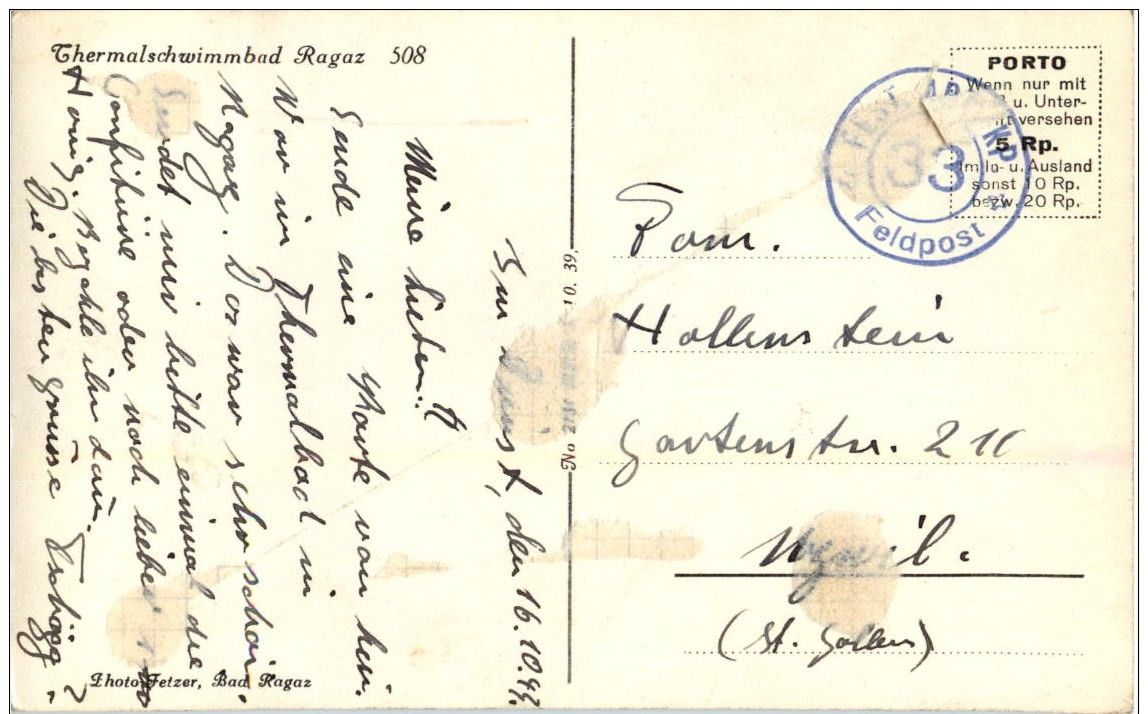 Thermalschwimmbad Ragaz 508
Im Dienst, den 16.10.44.
Meine Lieben!!
Sende eine Karte von hier.
War im Thermalbad in
Ragaz. Das war schon schön.
Sendet mir bitte einmal die
Confitüre oder noch lieber
Honig. Bezahle ihn dann.
Die besten Grüsse
Photo Fetzer, Bad Ragaz
No
10. 39.
PORTO
Wenn nur mit
u. Unter-
versehen
5 Rp.
Im In- u. Ausland
sonst 10 Rp.
bezw. 20 Rp.
FEST. KP.
33
Feldpost
Fam.
Hollenstein
Gartenstr.
(St. Gallen)